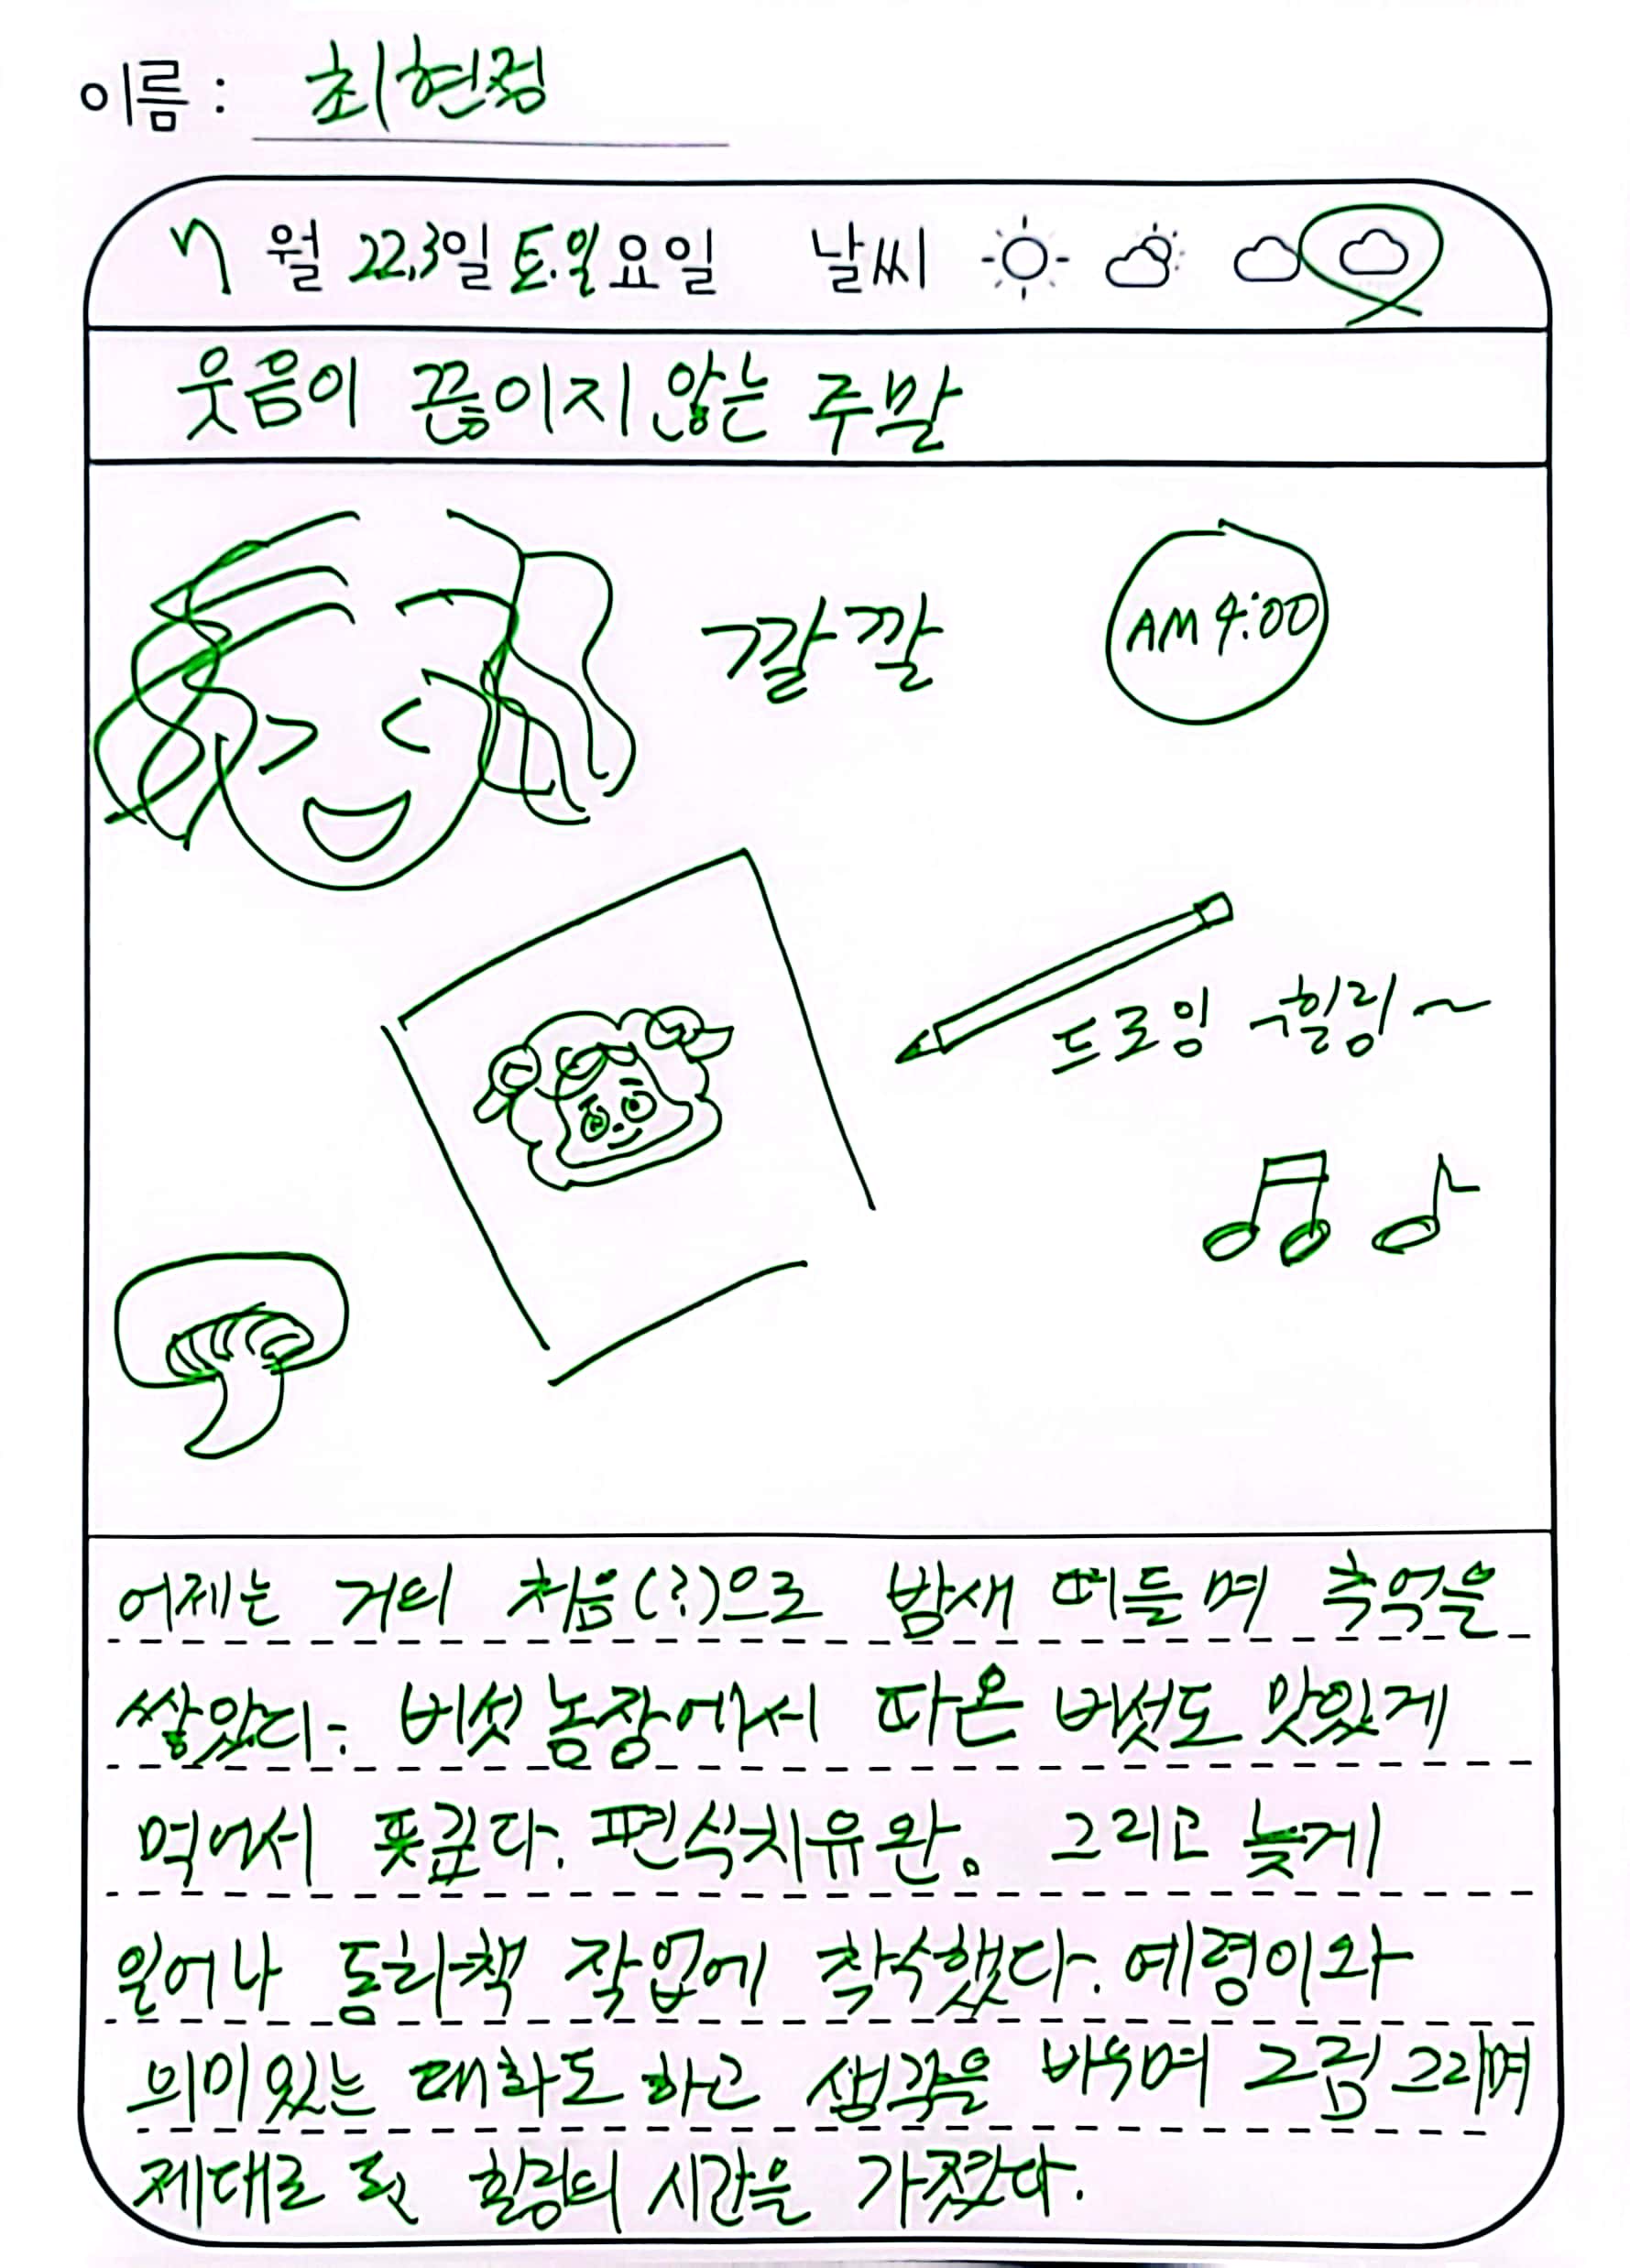 이름 : 최현정
7 월 22,3일 토.일요일 날씨
웃음이 끊이지 않는 주말
깔깔
AM 4:00
드로잉 힐링~
어제는 거의 처음(?)으로 밤새 떠들며 추억을
쌓았다. 버섯농장에서 따온 버섯도 맛있게
먹어서 뜻깊다. 편식치유완。 그리고 늦게
일어나 동화책 작업에 착수했다. 예령이와
의미있는 대화도 하고 생각을 비우며 그림그리며
제대로 된 힐링의 시간을 가졌다.